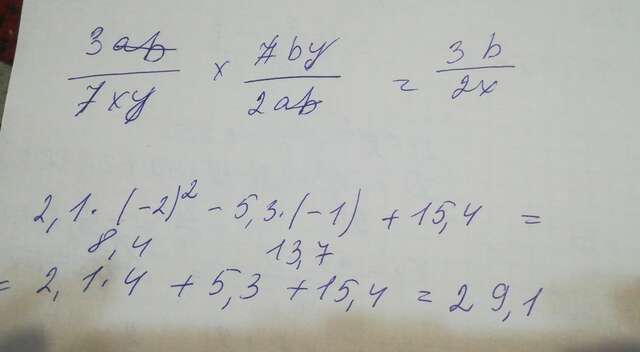 3ab/7xy × 7by/2ab = 3b/2x
2,1·(-2)² - 5,3·(-1) + 15,4 =
8,4 13,7
= 2,1·4 + 5,3 + 15,4 = 29,1